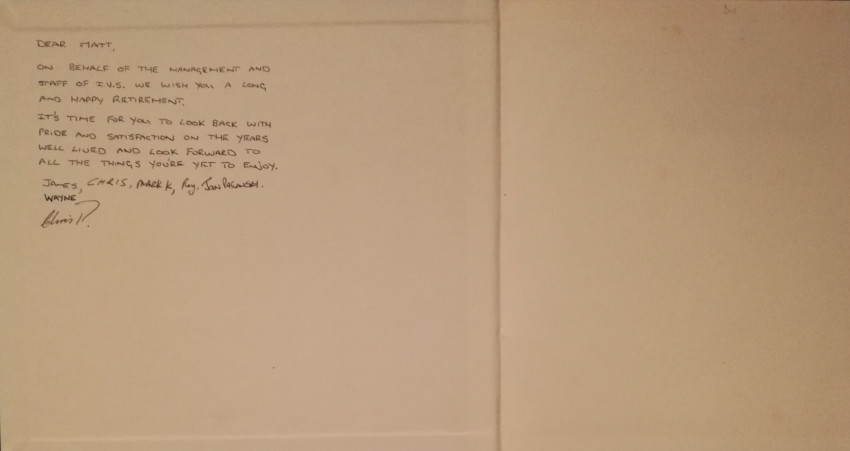 DEAR MATT,
ON BEHALF OF THE MANAGEMENT AND
STAFF OF I.V.S. WE WISH YOU A LONG
AND HAPPY RETIREMENT.
IT'S TIME FOR YOU TO LOOK BACK WITH
PRIDE AND SATISFACTION ON THE YEARS
WELL LIVED AND LOOK FORWARD TO
ALL THE THINGS YOU'RE YET TO ENJOY.
JAMES, CHRIS, MARK K, Roy.
WAYNE
Chris